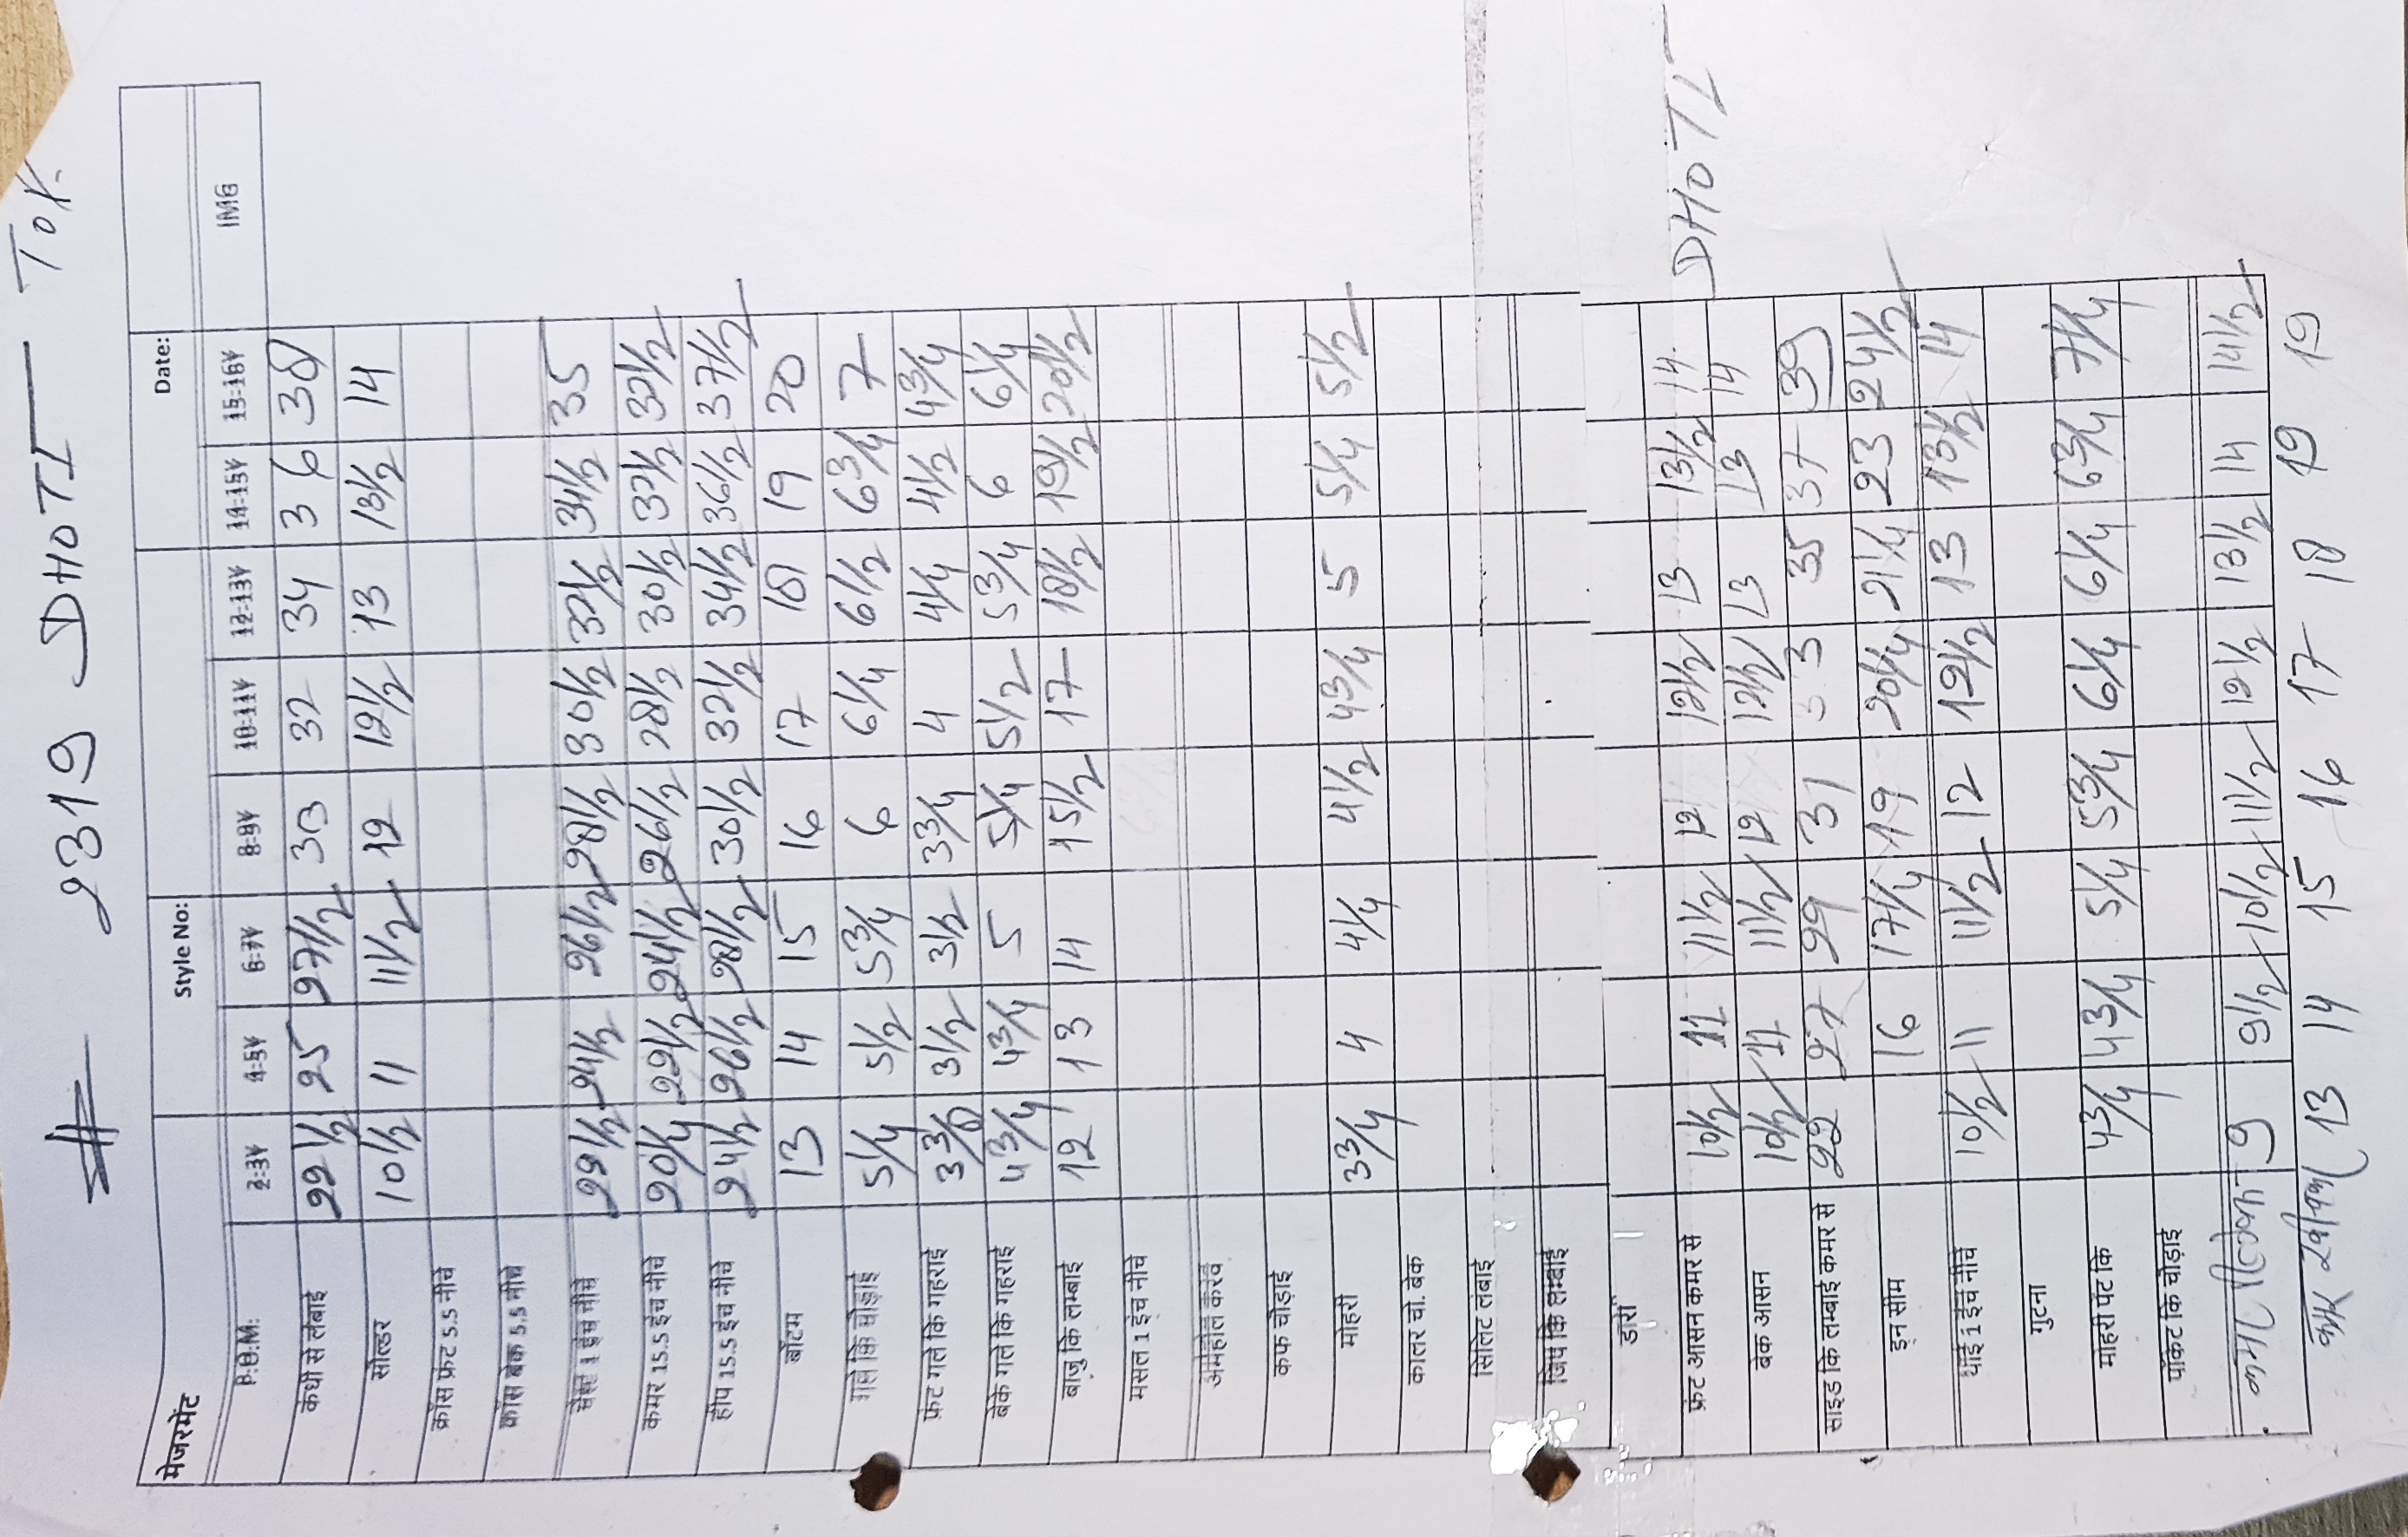 # 2319 DHOTI TOP
मेजरमेंट Style No: Date:
P.O.M: 2-3Y 4-5Y 6-7Y 8-9Y 10-11Y 12-13Y 14-15Y 15-16Y IMG
कंधी से लंबाई 22 1/2 25 27 1/2 30 32 34 36 38
सोल्डर 10 1/2 11 11 1/2 12 12 1/2 13 13 1/2 14
क्रॉस फ्रंट 5.5 नीचे
क्रॉस बेक 5.5 नीचे
चेस्ट 1 इंच नीचे 22 1/2 24 1/2 26 1/2 28 1/2 30 1/2 32 1/2 34 1/2 35
कमर 15.5 इंच नीचे 20 1/4 22 1/2 24 1/2 26 1/2 28 1/2 30 1/2 32 1/2 32 1/2
हीप 15.5 इंच नीचे 24 1/2 26 1/2 28 1/2 30 1/2 32 1/2 34 1/2 36 1/2 37 1/2
बॉटम 13 14 15 16 17 18 19 20
गले कि चोड़ाई 5 1/4 5 1/2 5 3/4 6 6 1/4 6 1/2 6 3/4 7
फ्रंट गले कि गहराई 3 3/8 3 1/2 3 1/2 3 3/4 4 4 1/4 4 1/2 4 3/4
बेके गले कि गहराई 4 3/4 4 3/4 5 5 1/4 5 1/2 5 3/4 6 6 1/4
बाजु कि लम्बाई 12 13 14 15 1/2 17 18 1/2 19 1/2 20 1/2
मसल 1 इंच नीचे
अमहोल करेव
कफ चोड़ाई
मोहरी 3 3/4 4 4 1/4 4 1/2 4 3/4 5 5 1/4 5 1/2
कालर चो. बेक
सिलिट लंबाई
जिप कि लम्बाई
डोरी
DHOTI
फ्रंट आसन कमर से 10 1/2 11 11 1/2 12 12 1/2 13 13 1/2 14
बेक आसन 10 1/2 11 11 1/2 12 12 1/2 13 13 14
साइड कि लम्बाई कमर से 22 27 29 31 33 35 37 39
इन सीम 16 17 1/4 19 20 1/4 21 1/4 23 24 1/2
थाई 1 इंच नीचे 10 1/2 11 11 1/2 12 12 1/2 13 13 1/2 14
गुटना
मोहरी पेंट कि 4 3/4 4 3/4 5 1/4 5 3/4 6 1/4 6 1/4 6 3/4 7 1/4
पॉकेट कि चोड़ाई
कमर 9 9 1/2 10 1/2 11 1/2 12 1/2 13 1/2 14 14 1/2
13 14 15 16 17 18 19 19